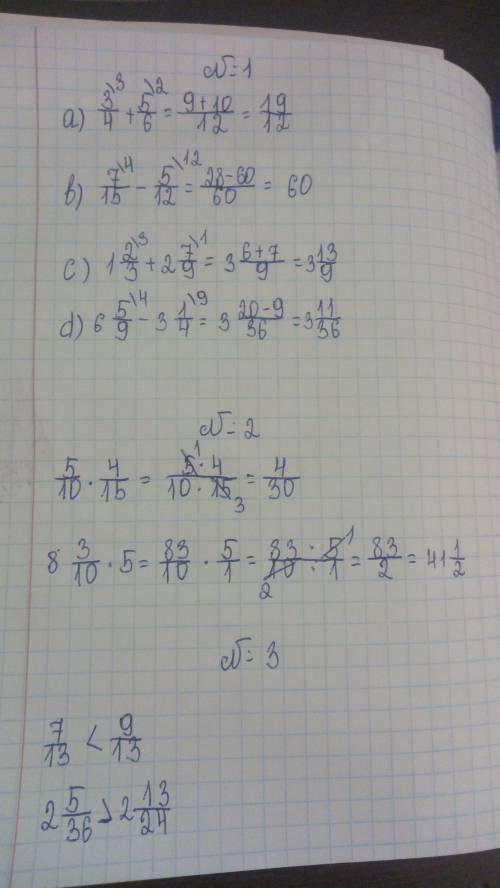 № 1
a) 3/4\3 + 5/6\2 = 9+10/12 = 19/12
b) 7/15\4 − 5/12\12 = 28−60/60 = 60
c) 1 2/3\3 + 2 7/9\1 = 3 6+7/9 = 3 13/9
d) 6 5/9\4 − 3 1/4\9 = 3 20−9/36 = 3 11/36
№ 2
5/10 · 4/15 = 5·4/10·15 1 3 = 4/30
8 3/10 · 5 = 83/10 · 5/1 = 83·5/10·1 1 2 = 83/2 = 41 1/2
№ 3
7/13 < 9/13
2 5/36 > 2 13/24